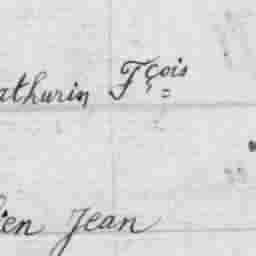 athurin Fçois
ien Jean